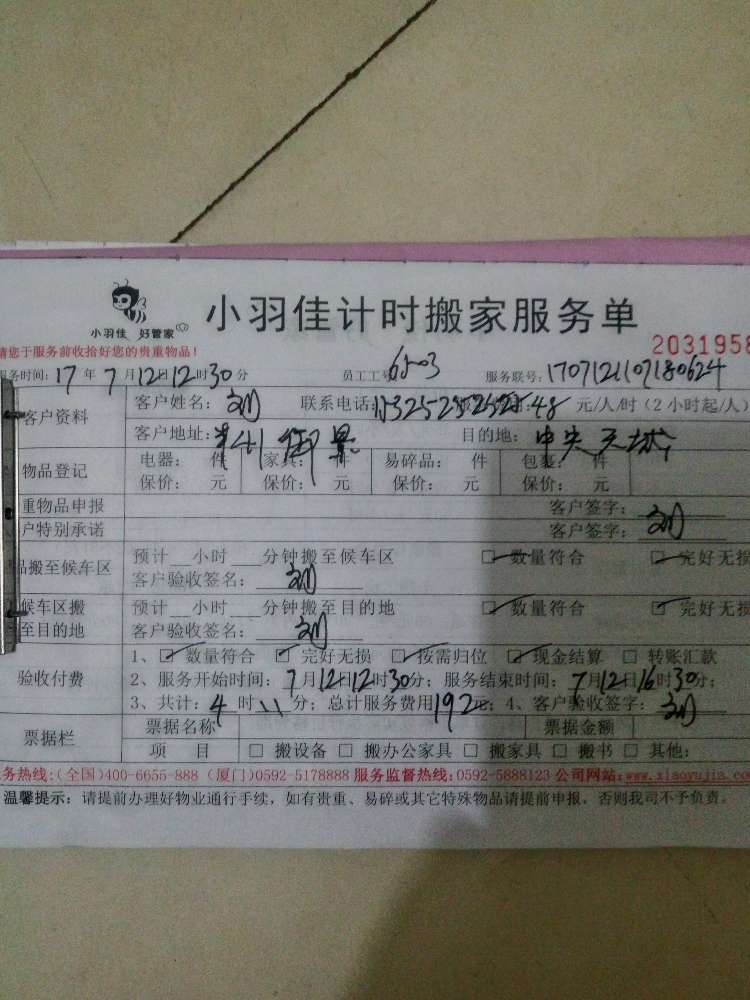 小羽佳 好管家
小羽佳计时搬家服务单
请您于服务前收拾好您的贵重物品!
2031958
务时间: 17 年 7 月 12日 12时 30分 员工工号 6503 服务联号: 1707121107180624
客户资料
客户姓名: 刘 联系电话: 48 元/人/时(2小时起/人)
客户地址: 御景 目的地: 中央天
物品登记
电器: 件 家具: 件 易碎品: 件 包裹: 件
保价: 元 保价: 元 保价: 元 保价: 元
重物品申报 客户签字:
户特别承诺 客户签字: 刘
品搬至候车区
预计__小时___分钟搬至候车区 数量符合 完好无损
客户验收签名: 刘
候车区搬至目的地
预计__小时___分钟搬至目的地 数量符合 完好无损
客户验收签名: 刘
验收付费
1、 数量符合 完好无损 按需归位 现金结算 转账汇款
2、服务开始时间: 7月12日12时30分; 服务结束时间: 7月12日16时30分;
3、共计: 4 时 \\ 分; 总计服务费用 192元; 4、客户验收签字: 刘
票据栏
票据名称 票据金额
项 目 □ 搬设备 □ 搬办公家具 □ 搬家具 □ 搬书 □ 其他:
务热线:(全国)400-6655-888 (厦门)0592-5178888 服务监督热线:0592-5888123 公司网站:www.xiaoyujia.com
温馨提示: 请提前办理好物业通行手续, 如有贵重、易碎或其它特殊物品请提前申报, 否则我司不予负责。